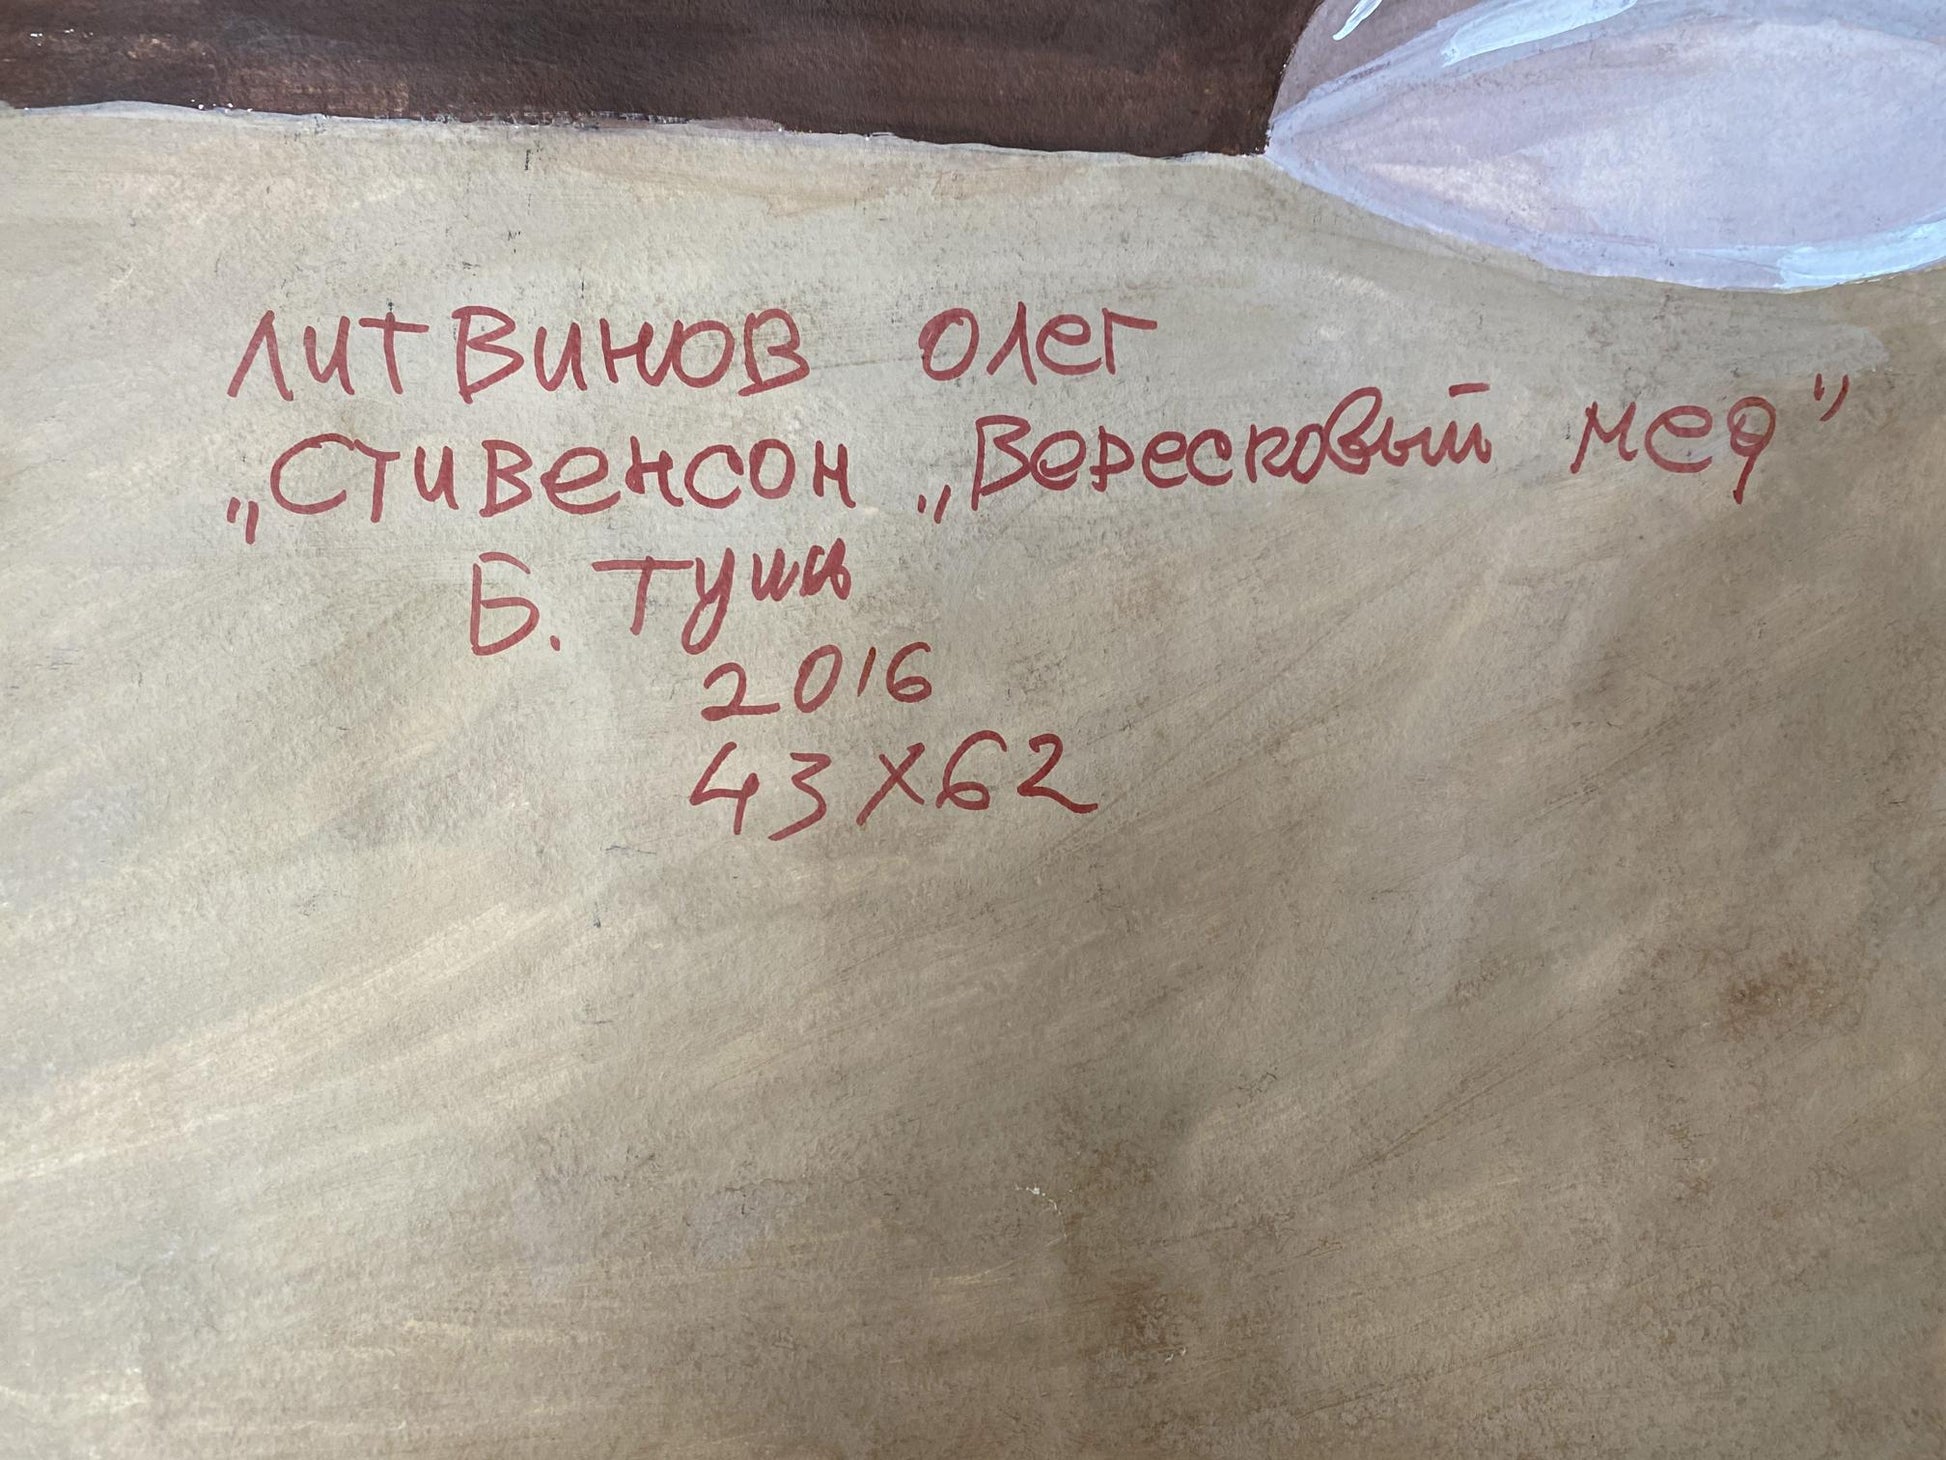 ЛИТВИНОВ ОЛЕГ
„СТИВЕНСОН „Вересковый мед”
Б. Тушь
2016
43х62